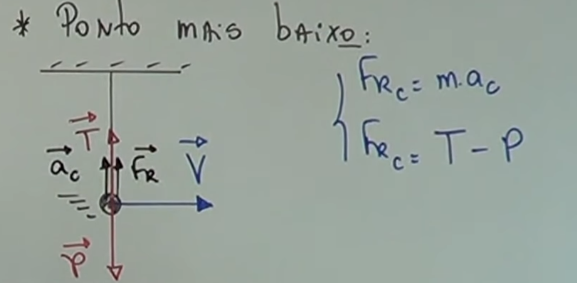 * PONTO MAIS BAIXO:
T
a_c F_R V
P
F_R_C = m.a_c
F_R_C = T - P